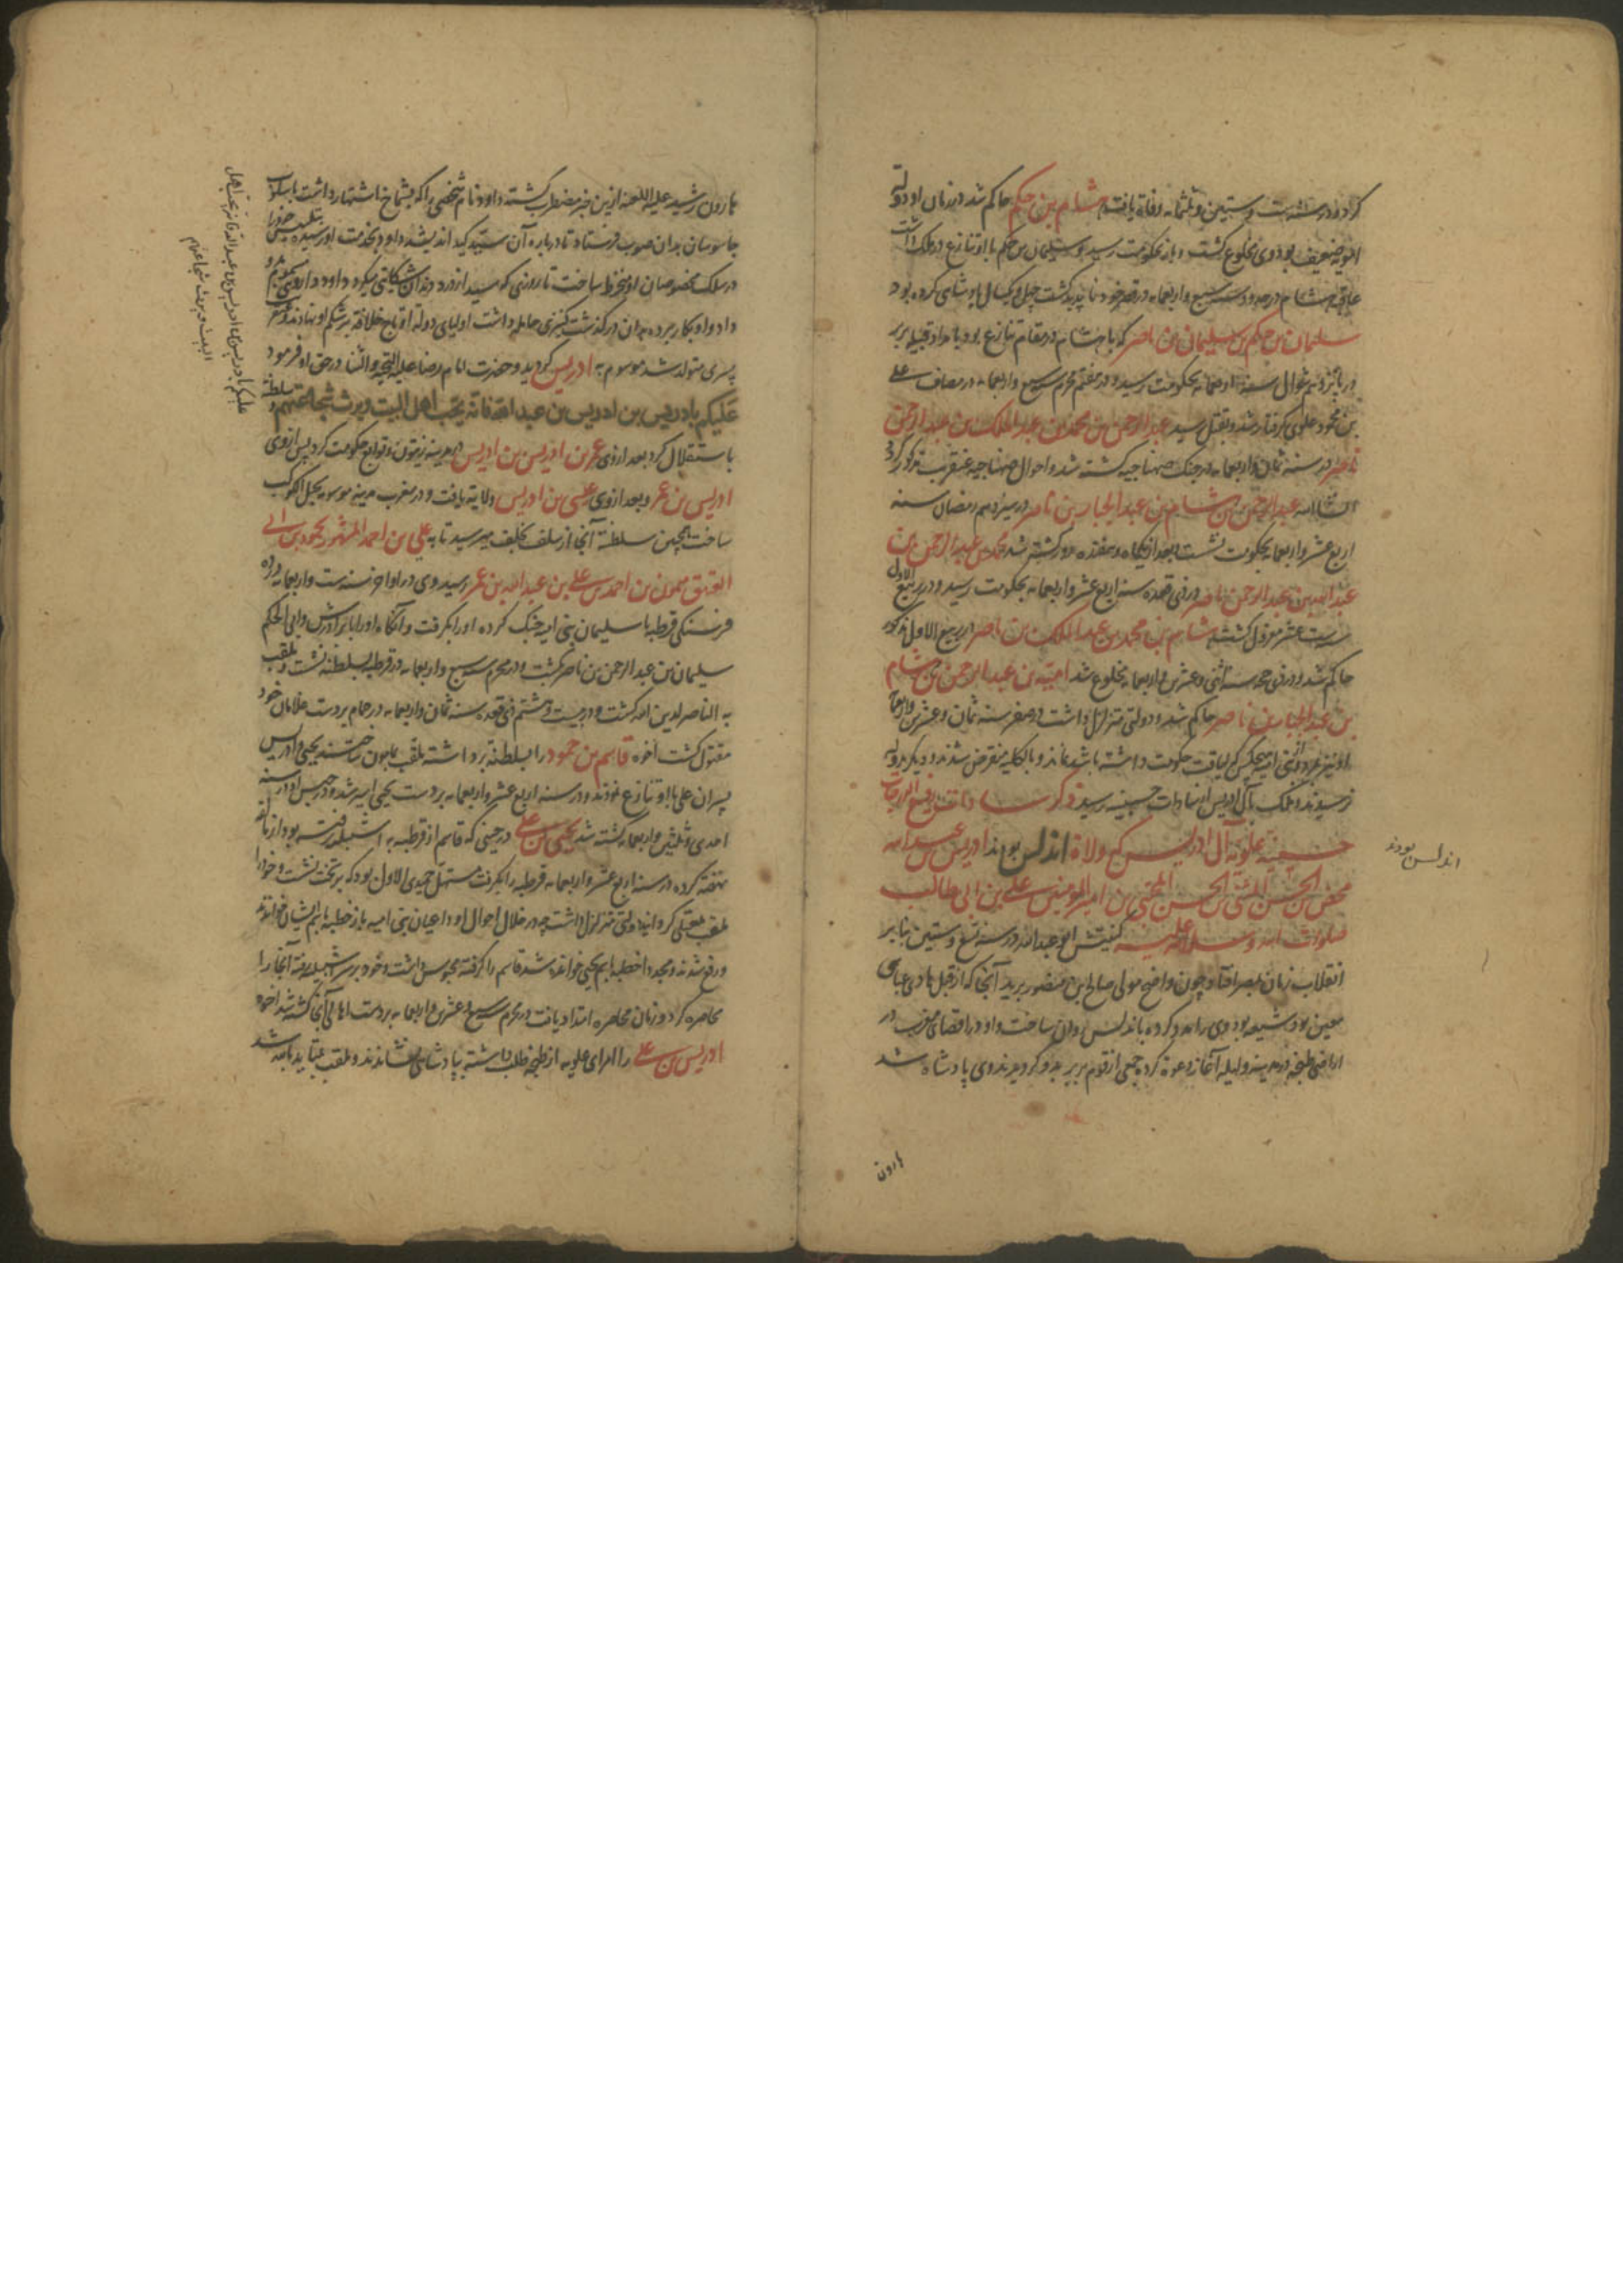 کرد و در سنه ست و ستین و ثلثمائه وفاة یافت هشام بن حکم حاکم شد در زمان او دولة
امویه ضعیف بود وی مخلوع گشت و باز بحکومت رسید و سلیمان بن حکم با او تنازع در ملک داشت
عاقبة هشام در حدود سنه سبع و اربعمایه در قصر خود ناپدید گشت چهل و یکسال پادشاهی کرده بود
سلیمان بن حکم بن سلیمان بن ناصر که با هشام در مقام تنازع بود بامداد قبیله بربر
در پانزدهم شوال سنه اربعمایه بحکومت رسید و در هفتم محرم سنه سبع و اربعمایه در مصاف علی
بن حمود علوی گرفتار شد و بقتل رسید عبد الرحمن بن محمد بن عبد الملک بن عبد الرحمن
ناصر در سنه ثمان و اربعمایه در جنک صنهاجیه کشته شد و احوال صنهاجیه عنقریب مذکور گردد
انشاالله عبد الرحمن بن هشام بن عبد الجبار بن ناصر در سیزدهم رمضان سنه
اربع عشر و اربعمایه بحکومت نشست بعد از یکماه و هفده روز کشته شد محمد بن عبد الرحمن بن
عبد الله بن عبد الرحمن ناصر در ذی قعده سنه اربع عشر و اربعمایه بحکومت رسید و در ربیع الاول
ست عشر معزول گشت هشام بن محمد بن عبد الملک بن ناصر در ربیع الاول مذکور
حاکم شد و در ذی حجه سنه اثنی و عشرین و اربعمایه مخلوع شد امیة بن عبد الرحمن بن هشام
بن عبد الجبار بن ناصر حاکم شد و دولتی متزلزل داشت و در صفر سنه ثمان و عشرین و اربعمایه
او نیز بمرد و از بنی امیه هیچکس که لیاقت حکومت داشته باشد نماند و بالکلیه منقرض شدند و دیگر بدولة
نرسیدند و ملک بآل ادریس از سادات حسینیه رسید ذکر سادات رفیع الدرجات
حسنیه علویه آل ادریس که ولاة اندلس بودند ادریس بن عبد الله
محض بن الحسن المثنی بن الحسن المجتبی بن امیر المومنین علی بن ابی طالب
صلوات الله و سلامه علیه کنیتش ابو عبدالله در سنه تسع و ستین بنابر
انقلاب زمان بمصر افتاد و چون واضح مولی صالح بن منصور برید آنجا که از قبل هادی عباسی
معین بود شیعه بود وی را مدد کرده باندلس روان ساخت و او در اقصای مغرب در
اراضی طنجه در مدینه ولیله آغاز دعوة کرده جمعی از قوم بربر بدو گرویدند وی پادشاه شد
هارون
اندلس بودند
هارون رشید علیه اللعنه ازین خبر مضطرب گشته داود نام شخصی را که بشماخ اشتهار داشت باسلوب
جاسوسان بدان صوب فرستاد تا درباره آن سید کید اندیشد داود بخدمت او رسیده بتلبیس خود را
در سلک مخصوصان او منخرط ساخت تا روزی که سید از درد دندان شکایتی میکرد داود داروی مسموم بدو
داد و او بکار برده بدان درگذشت کنیزی حامله داشت اولیای دولة او تاج خلافة بر شکم او نهادند و
پسری متولد شد موسوم به ادریس گردید و حضرت امام رضا علیه التحیه و الثنا در حق او فرمود
علیکم بادریس بن ادریس بن عبد الله فانه نجیب اهل البیت ویرث شجاعتهم و سلطنة
باستقلال کرد بعد از وی عمر بن ادریس بن ادریس در مدینه زیتون و توابع حکومت کرد پس از وی
ادریس بن عمر و بعد از وی عیسی بن ادریس ولایة یافت و در مغرب مدینه موسومه بجبل الکوکب
ساخت همچنین سلطنة آنجا از سلف بخلف میرسید تا به علی بن احمد المشهور بحمود بن ابی
العیق میمون بن احمد بن علی بن عبد الله بن عمر رسید وی در اواخر سنه ست و اربعمایه در ده
فرسنکی قرطبه با سلیمان بنی امیه جنک کرده او را بکرفت و آنگاه او را با برادرش و ابی الحکم
سلیمان بن عبد الرحمن بن ناصر بکشت و در محرم سنه سبع و اربعمایه در قرطبه بسلطنة نشست و ملقب
به الناصر لدین الله گشت و در بیست و هشتم ذی قعده سنه ثمان و اربعمایه در حمام بردست غلامان خود
مقتول گشت اخوه قاسم بن حمود را بسلطنة برداشته ملقب بمامون ساختند یحیی و ادریس
پسران علی با او تنازع نمودند و در سنه اربع عشر و اربعمایه بردست یحیی اسیر شد و در حبس او در سنه
احدی و ثلثین و اربعمایه کشته شد یحیی بن علی در حینی که قاسم از قرطبه به اشبیله رفته بود از مالقه
نهضة کرده در سنه اربع عشر و اربعمایه قرطبه را بکرفت مستهل جمیدی الاول بود که بر تخت نشست و خود را
ملقب بمعتلی گردانید دولتی متزلزل داشت چه در خلال احوال او داعیان بنی امیه باز خطبه باسم ایشان خواندند
و رفع شدند و مجددا خطبه باسم یحیی خوانده شد قاسم را گرفته محبوس داشت و خود بر سر اشبیله رفته آنجا را
محاصره کرد و زمان محاصره امتداد یافت در محرم سنه سبع و عشرین و اربعمایه بردست اهالی آنجا کشته شد اخوه
ادریس بن علی را امرای علویه از طنجه طلب داشته بپادشاهی نشاندند و ملقب بمتاید بالله شد
علیکم بادریس بن ادریس بن عبد الله فانه نجیب اهل
البیت ویرث شجاعتهم